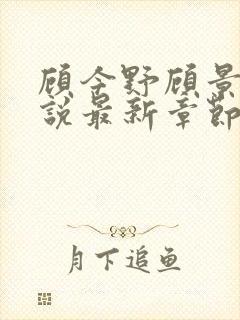 顾念野顾景
說最新章節
月下追鱼